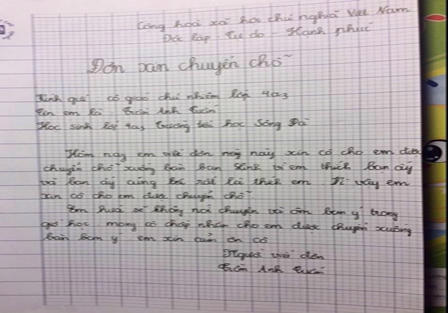 Cộng hoà xã hội chủ nghĩa Việt Nam
Độc lập - Tự do - Hạnh phúc
Đơn xin chuyển chỗ
Kính gửi cô giáo chủ nhiệm lớp 4a3
Tên em là Trần Anh Tuấn
Học sinh lớp 4a3 trường tiểu học Sông Đà
Hôm nay em viết đơn này xin cô cho em được
chuyển chỗ xuống bàn bạn Linh vì em thích bạn ấy
và bạn ấy cũng rất là thích em. Vì vậy em
xin cô cho em được chuyển chỗ
Em hứa sẽ không nói chuyện và ôm bạn ý trong
giờ học mong cô chấp nhận cho em được chuyển xuống
bàn bạn ý em xin cảm ơn cô
Người viết đơn
Trần Anh Tuấn